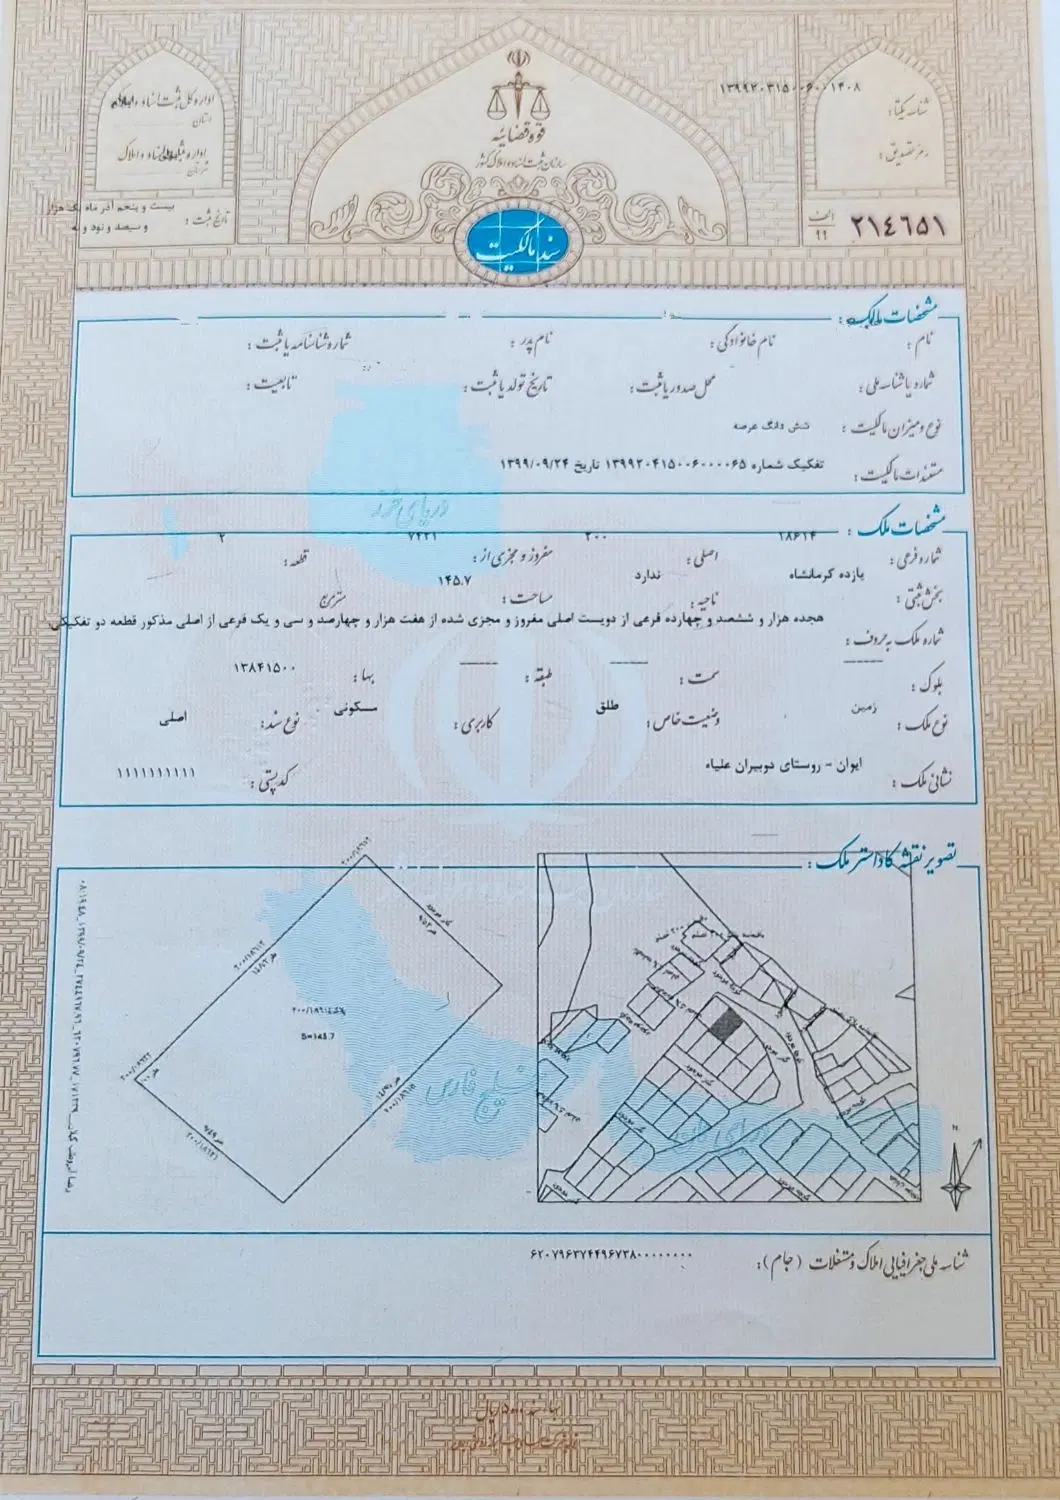 قوه قضائیه
سازمان ثبت اسناد و املاک کشور
سند مالکیت
اداره کل ثبت اسناد و املاک
استان
اداره ثبت اسناد و املاک
شهرستان
تاریخ ثبت : بیست و پنجم آذر ماه یک هزار
و سیصد و نود و نه
شناسه یکتا :
رمز تصدیق :
الف
۹۹
۲۱۴۶۵۱
مشخصات مالک :
نام : نام خانوادگی : نام پدر : شماره شناسنامه یا ثبت :
شماره یا شناسه ملی : محل صدور یا ثبت : تاریخ تولد یا ثبت : تابعیت :
نوع و میزان مالکیت : شش دانگ عرصه
مستندات مالکیت : تفکیک شماره ۱۳۹۹۲۰۴۱۵۰۰۶۰۰۰۰۶۵ تاریخ ۱۳۹۹/۰۹/۲۴
دریای خزر
مشخصات ملک :
شماره فرعی : ۱۸۶۱۴ اصلی : ۲۰۰ مفروز و مجزی از : ۷۴۳۱ قطعه : ۲
بخش ثبتی : یازده کرمانشاه ناحیه : ندارد مساحت : ۱۴۵.۷ متر مربع
شماره ملک به حروف : هجده هزار و ششصد و چهارده فرعی از دویست اصلی مفروز و مجزی شده از هفت هزار و چهارصد و سی و یک فرعی از اصلی مذکور قطعه دو تفکیکی
بلوک : سمت : طبقه : بها : ۱۳۸۴۱۵۰۰
نوع ملک : زمین وضعیت خاص : طلق کاربری : مسکونی نوع سند : اصلی
نشانی ملک : ایوان - روستای دوبیران علیاء کدپستی : ۱۱۱۱۱۱۱۱۱۱
تصویر نقشه کاداستر ملک :
S=145.7
خلیج فارس
دریای عمان
N
شناسه ملی جغرافیایی املاک و مستغلات (جام) :